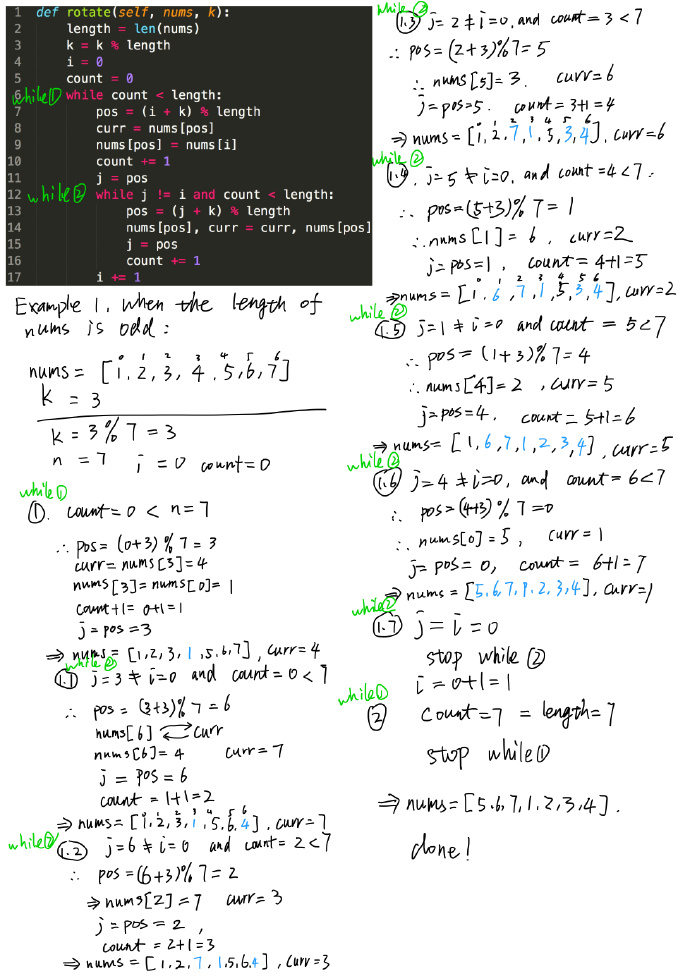 1 def rotate(self, nums, k):
2 length = len(nums)
3 k = k % length
4 i = 0
5 count = 0
while①
6 while count < length:
7 pos = (i + k) % length
8 curr = nums[pos]
9 nums[pos] = nums[i]
10 count += 1
11 j = pos
while②
12 while j != i and count < length:
13 pos = (j + k) % length
14 nums[pos], curr = curr, nums[pos]
15 j = pos
16 count += 1
17 i += 1
Example 1. when the length of
nums is odd:
0 1 2 3 4 5 6
nums = [1, 2, 3, 4, 5, 6, 7]
k = 3
k = 3 % 7 = 3
n = 7 i = 0 count = 0
while①
①. count = 0 < n = 7
∴ pos = (0+3) % 7 = 3
curr = nums[3] = 4
nums[3] = nums[0] = 1
count+1 = 0+1 = 1
j = pos = 3
⇒ nums = [1, 2, 3, 1, 5, 6, 7], curr = 4
while②
1.1 j = 3 ≠ i = 0 and count = 0 < 7
∴ pos = (3+3) % 7 = 6
nums[6] ⇄ curr
nums[6] = 4 curr = 7
j = pos = 6
count = 1+1 = 2
0 1 2 3 4 5 6
⇒ nums = [1, 2, 3, 1, 5, 6, 4], curr = 7
while②
1.2 j = 6 ≠ i = 0 and count = 2 < 7
∴ pos = (6+3) % 7 = 2
⇒ nums[2] = 7 curr = 3
j = pos = 2,
count = 2+1 = 3
⇒ nums = [1, 2, 7, 1, 5, 6, 4], curr = 3
while②
1.3 j = 2 ≠ i = 0, and count = 3 < 7
∴ pos = (2+3) % 7 = 5
∴ nums[5] = 3. curr = 6
j = pos = 5. count = 3+1 = 4
0 1 2 3 4 5 6
⇒ nums = [1, 2, 7, 1, 5, 3, 4], curr = 6
while②
1.4. j = 5 ≠ i = 0, and count = 4 < 7.
∴ pos = (5+3) % 7 = 1
∴ nums[1] = 6, curr = 2
j = pos = 1, count = 4+1 = 5
0 1 2 3 4 5 6
⇒ nums = [1, 6, 7, 1, 5, 3, 4], curr = 2
while②
1.5 j = 1 ≠ i = 0 and count = 5 < 7
∴ pos = (1+3) % 7 = 4
∴ nums[4] = 2, curr = 5
j = pos = 4. count = 5+1 = 6
⇒ nums = [1, 6, 7, 1, 2, 3, 4], curr = 5
while②
1.6 j = 4 ≠ i = 0, and count = 6 < 7
∴ pos = (4+3) % 7 = 0
∴ nums[0] = 5, curr = 1
j = pos = 0, count = 6+1 = 7
⇒ nums = [5, 6, 7, 1, 2, 3, 4], curr = 1
while②
1.7 j = i = 0
stop while②
i = 0+1 = 1
while①
② count = 7 = length = 7
stop while①
⇒ nums = [5, 6, 7, 1, 2, 3, 4].
done!